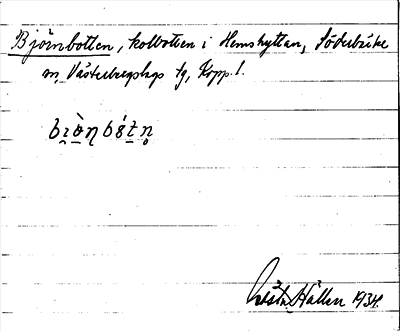 Björnbotten, kolbotten i Hemshyttan, Söderbärke
sn, Västerbergslags tg, Kopp. l.
Gösta Hallin 1934.